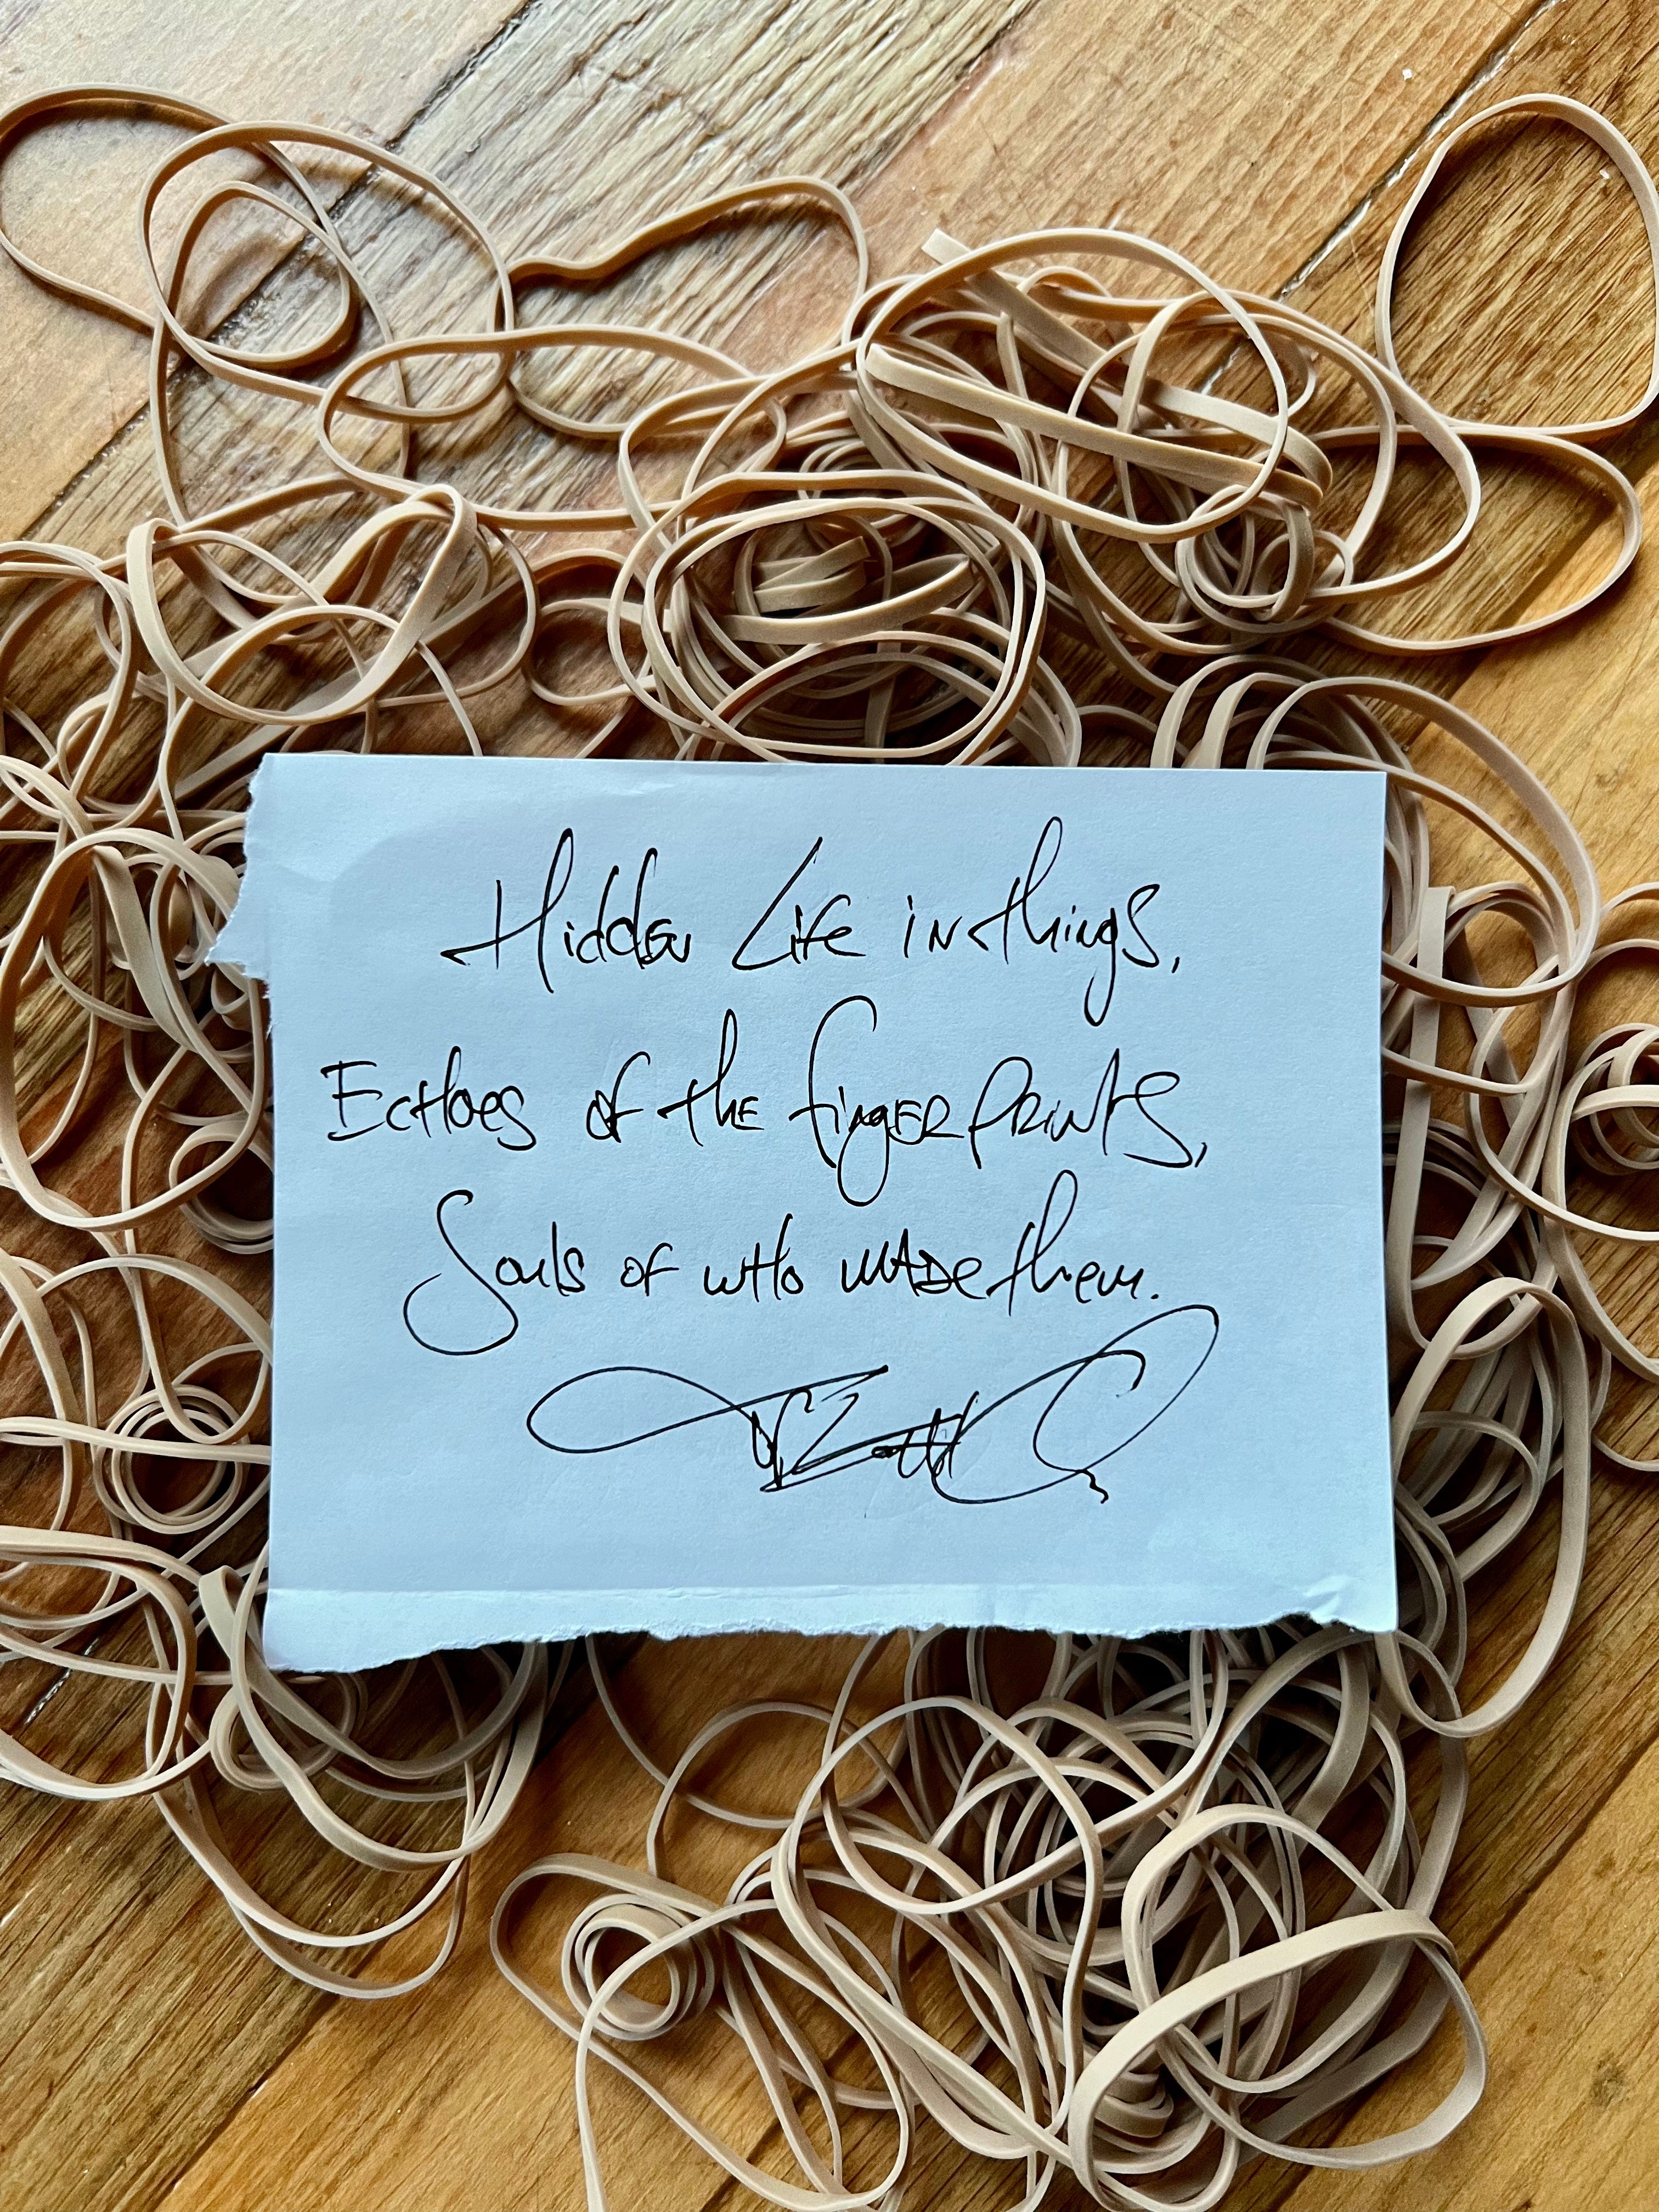 Hidden Life in things,
Echoes of the fingerprints,
Souls of who made them.